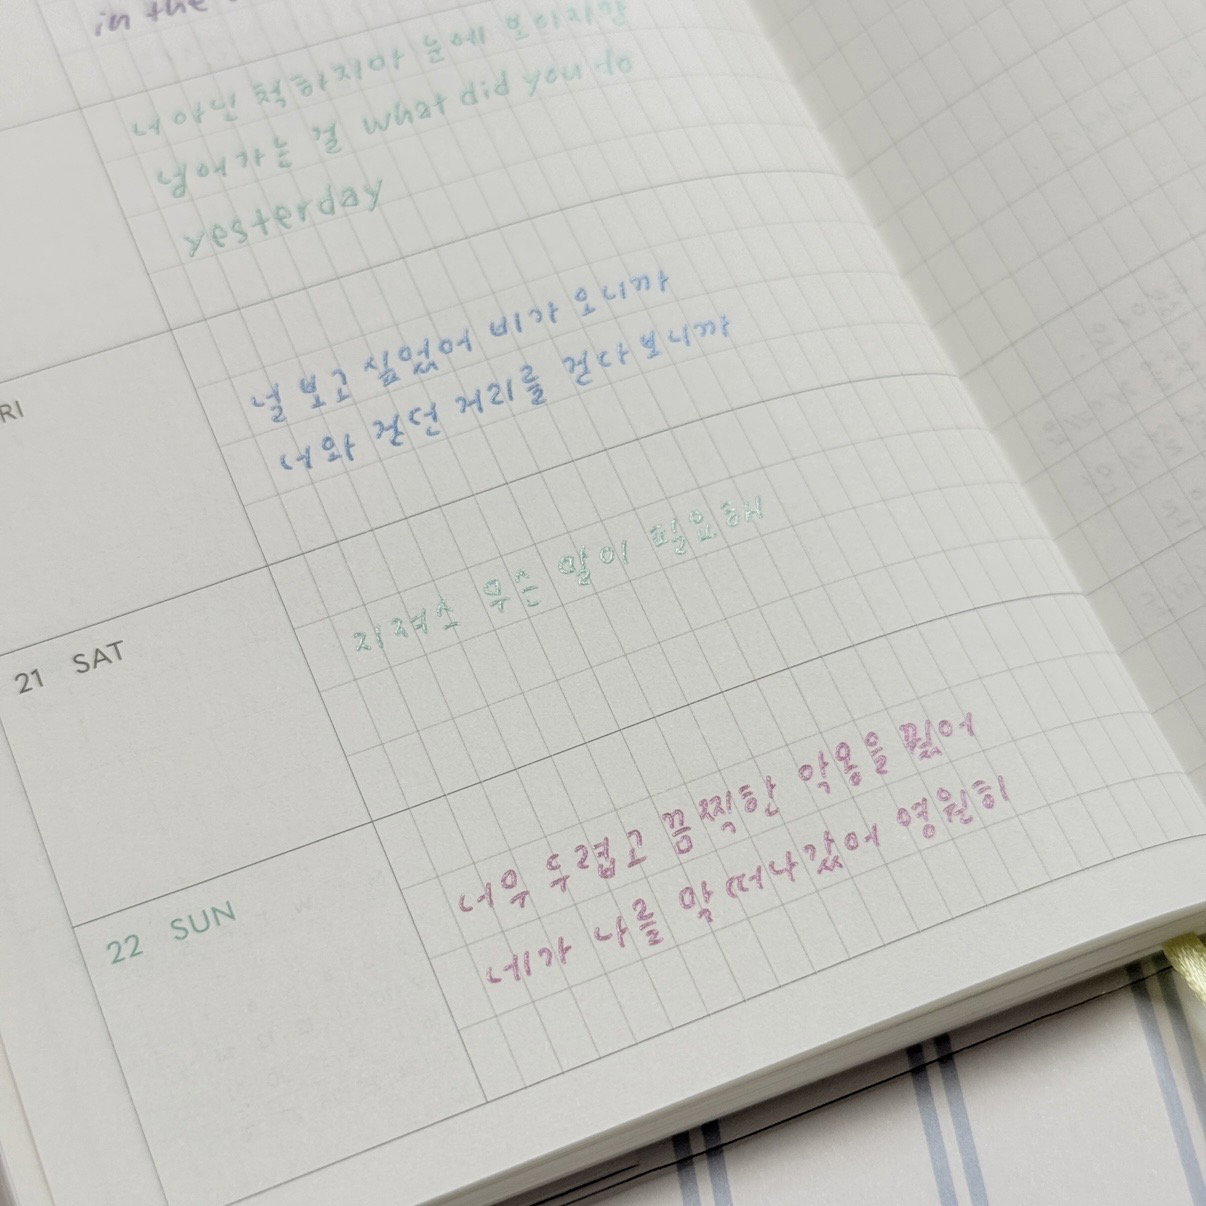 in the
너 아닌 척하지마 눈에
걸 what did you do
yesterday
RI
널 보고 싶었어 비가 오니까
너와 걷던 거리를 걷다 보니까
21 SAT
지져스 무슨 말이 필요해
22 SUN
너무 두렵고 끔찍한 악몽을 꿨어
네가 나를 막 떠나갔어 영원히